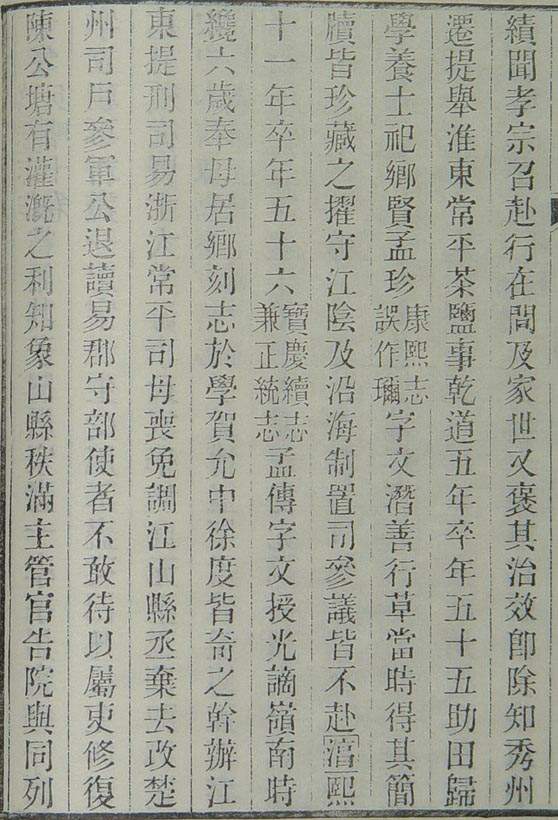 績聞孝宗召赴行在問及家世又褒其治效卽除知秀州
遷提舉淮東常平茶鹽事乾道五年卒年五十五助田歸
學養士祀鄉賢孟珍康熙志誤作字文潛善行草當時得其簡
牘皆珍藏之擢守江陰及沿海制置司參議皆不赴湻熙
十一年卒年五十六寶慶續志兼正統志孟傳字文授光謫嶺南時
纔六歲奉母居鄉刻志於學賀允中徐度皆奇之幹辦江
東提刑司易浙江常平司母喪免調江山縣丞棄去改楚
州司戶參軍公退讀易郡守部使者不敢待以屬吏修復
陳公塘有灌漑之利知象山縣秩滿主管官告院與同列